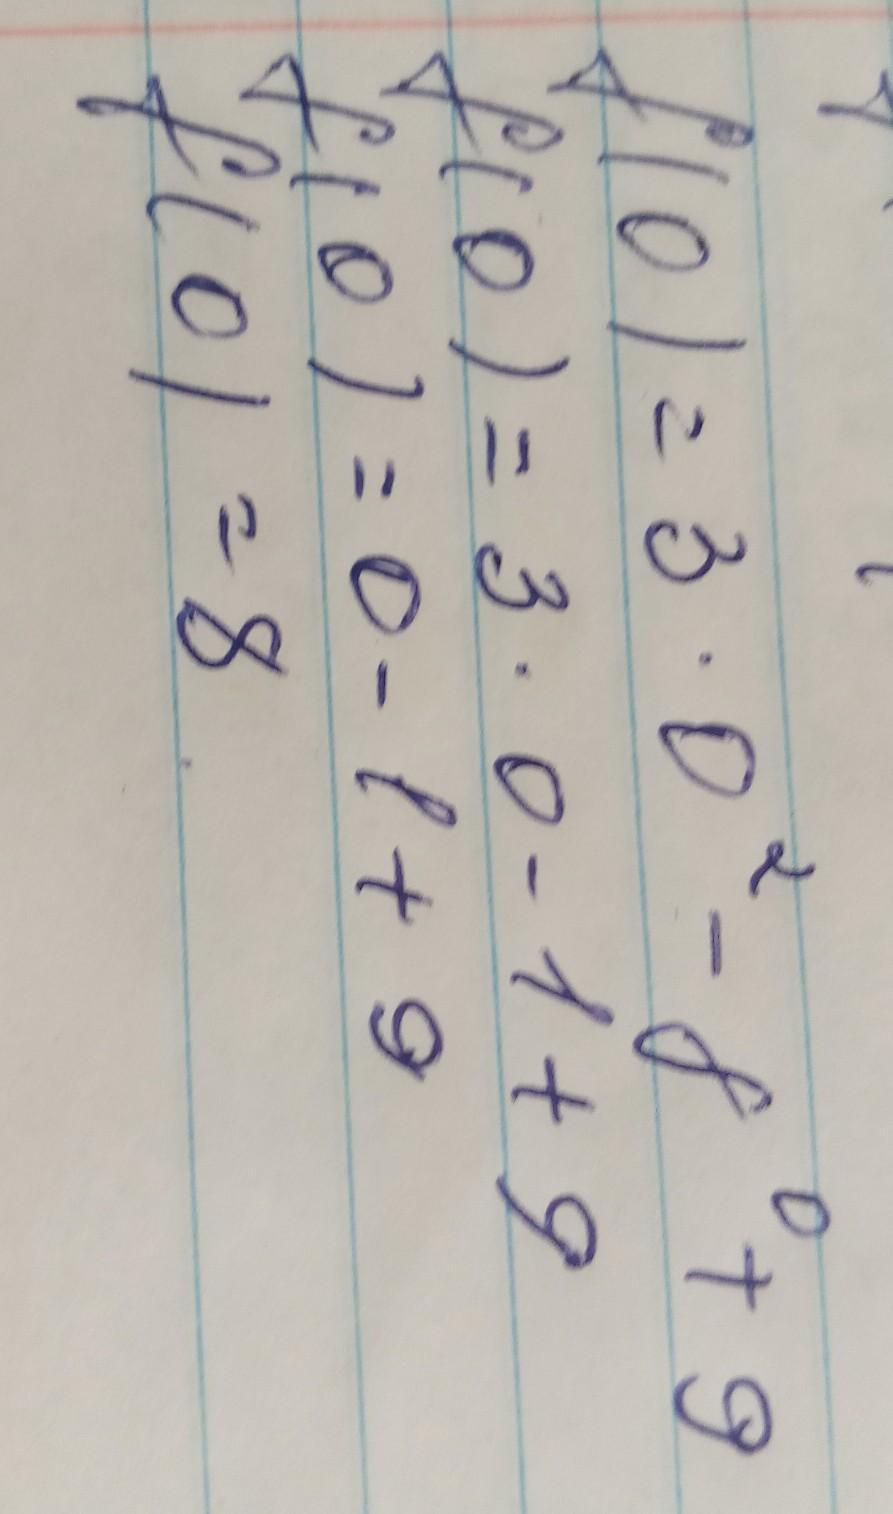 f(0) = 3 · 0² - 8⁰ + 9
f(0) = 3 · 0 - 1 + 9
f(0) = 0 - 1 + 9
f(0) = 8